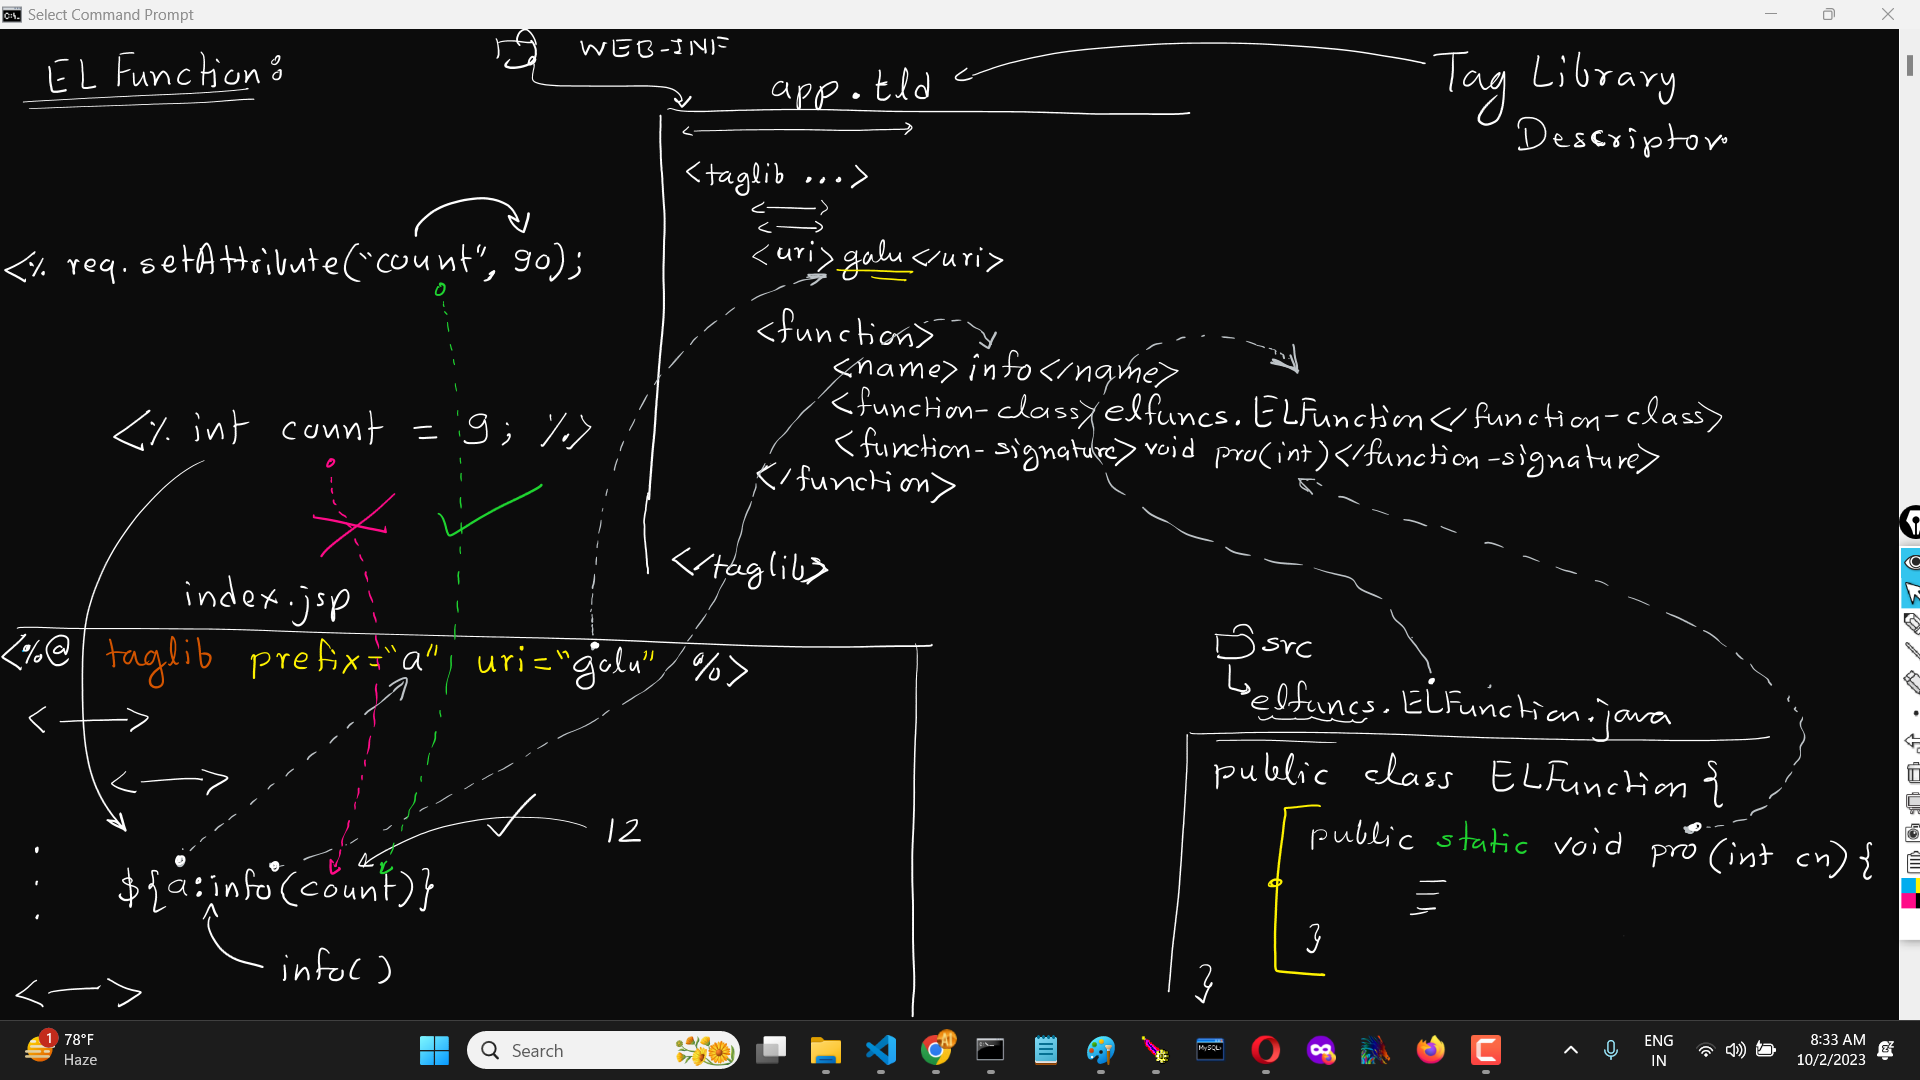 Select Command Prompt
EL Function:
WEB-INF
app.tld
Tag Library
Descriptor
<taglib ...>
<uri>galu</uri>
<% req.setAttribute("count", 90);
<function>
<name>info</name>
<function-class>elfuncs.ELFunction</function-class>
<function-signature>void pro(int)</function-signature>
</function>
</taglib>
<% int count = 9; %>
index.jsp
<%@ taglib prefix="a" uri="galu" %>
12
${a:info(count)}
info()
src
elfuncs.ELFunction.java
public class ELFunction {
public static void pro(int cn) {
}
}
1
78°F
Haze
Search
ENG
IN
8:33 AM
10/2/2023